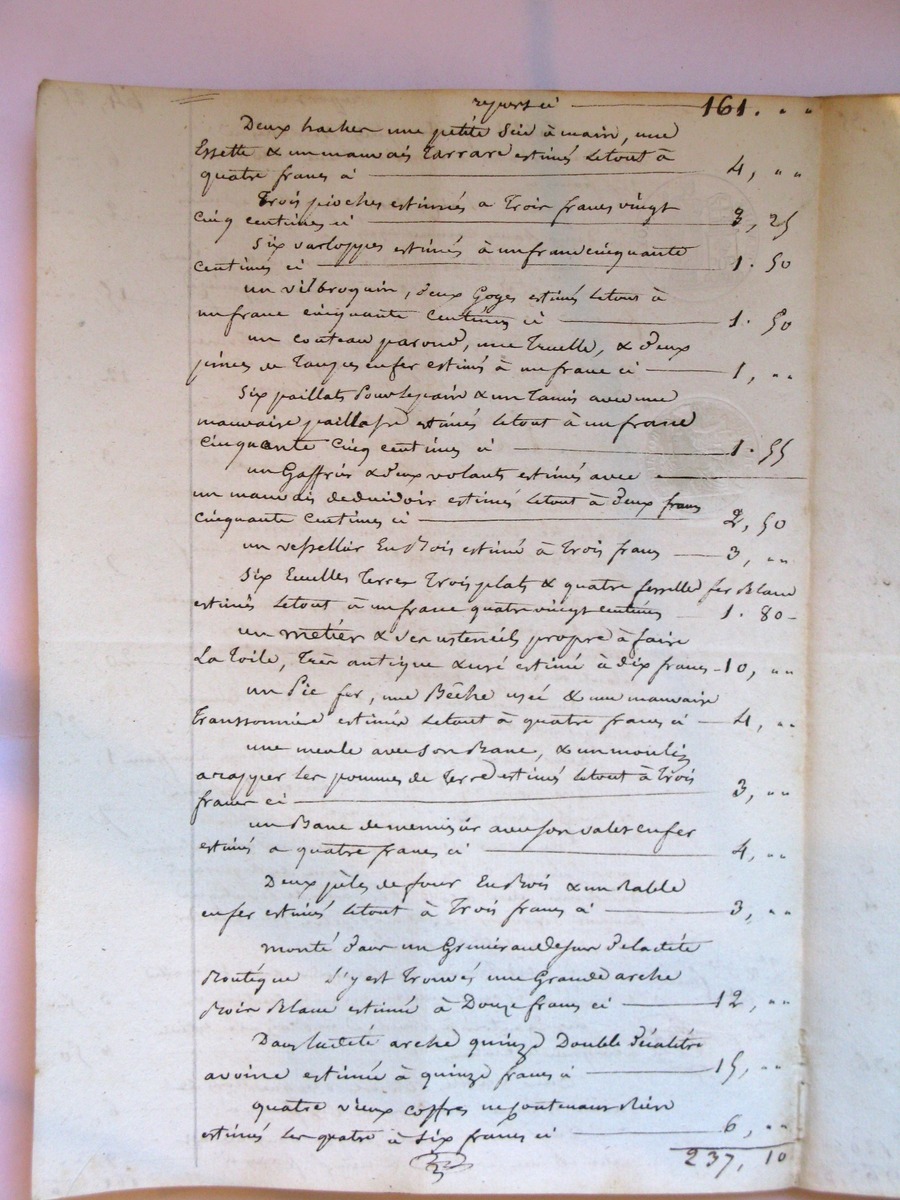 report ci 161. " "
Deux haches une petite Scie à main, une
Essette & un mauvais Tarrare estimés letout à
quatre francs ci 4, " "
Trois pioches estimés a Trois francs vingt
cinq centimes ci 3, 25
Six varloppes estimés à un franc cinquante
centimes ci 1. 50
un vilbroquin, deux Goges estimés letout à
un franc cinquante centimes ci 1. 50
un couteau parond, une Truelle, & deux
de enfer estimés à un franc ci 1, " "
Six paillats pour le pain & un Tamis avec une
mauvaise paillasse estimés letout à un franc
cinquante cinq centimes ci 1. 55
un & deux volants estimés avec
un mauvais devuidoir estimés letout à deux francs
cinquante centimes ci 2, 50
un vessellier En Bois estimé à trois francs 3, " "
Six Ecuelles Terres Trois plats & quatre fesselles fer Blanc
estimés letout à un franc quatre vingt centimes 1. 80 -
un métier & des ustenciels propre à faire
La Toile, Très antique & usé estimé à dix francs - 10, " "
un Pic fer, une Bêche usée & une mauvaise
estimés letout à quatre francs ci 4, " "
une meule avec son Banc, & un moulin
a rapper les pommes de Terre estimés letout à Trois
francs ci 3, " "
un Banc de menuisier avec son valet en fer
estimés a quatre francs ci 4, " "
Deux pèles de four En Bois & un Rable
en fer estimés letout à Trois francs ci 3, " "
monté dans un Grenier au dessur de la dite
Boutique s'y est Trouvés une Grande arche
Bois Blanc estimée à Douze francs ci 12, " "
Dans la dite arche quinze Double Décalitre
avoine estimée à quinze francs ci 15, " "
quatre vieux coffres ne contenans Rien
estimés les quatre à six francs ci 6, " "
237, 10